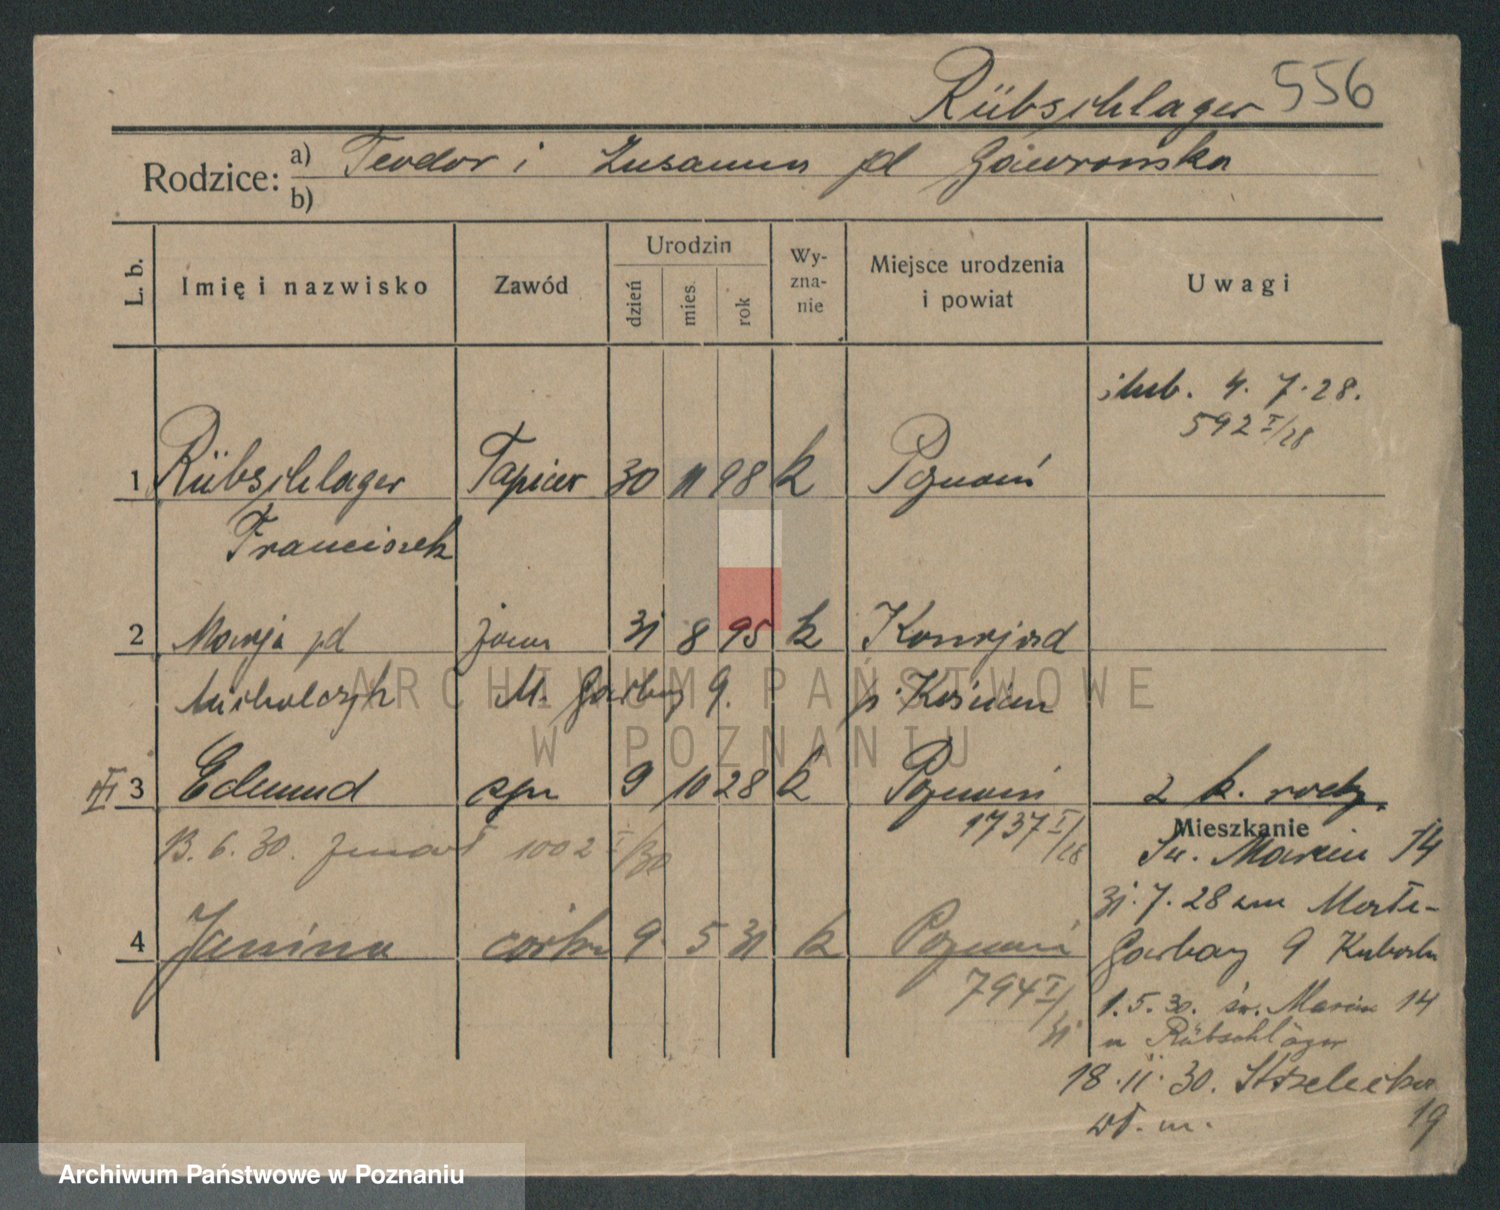 Rübschlager 556
Rodzice: a) Teodor i Zusanna pd Gawrońska
b)
L. b. Imię i nazwisko Zawód Urodzin dzień mies. rok Wy-zna-nie Miejsce urodzenia i powiat Uwagi
ślub. 4. 7. 28.
592 I/28
1 Rübschlager Tapicer 30 11 98 k Poznań
Franciszek
2 Marja pd żona 31 8 95 k Konojad
Michalczyk M. Garbary 9. p. Kościan
III 3 Edmund syn 9 10 28 k Poznań 2 k. rodz.
1737 I/28
Mieszkanie
13. 6. 30. zmarł 1002 I/30
Św. Marcin 14
31. 7. 28 Małe-
4 Janina córka 9 5 31 k Poznań
Garbary 9
794 I/31
1. 5. 30. św. Marcin 14
u Rübschläger
18. 11. 30. Strzelecka 19
wł. m.
ARCHIWUM PAŃSTWOWE
W POZNANIU
Archiwum Państwowe w Poznaniu